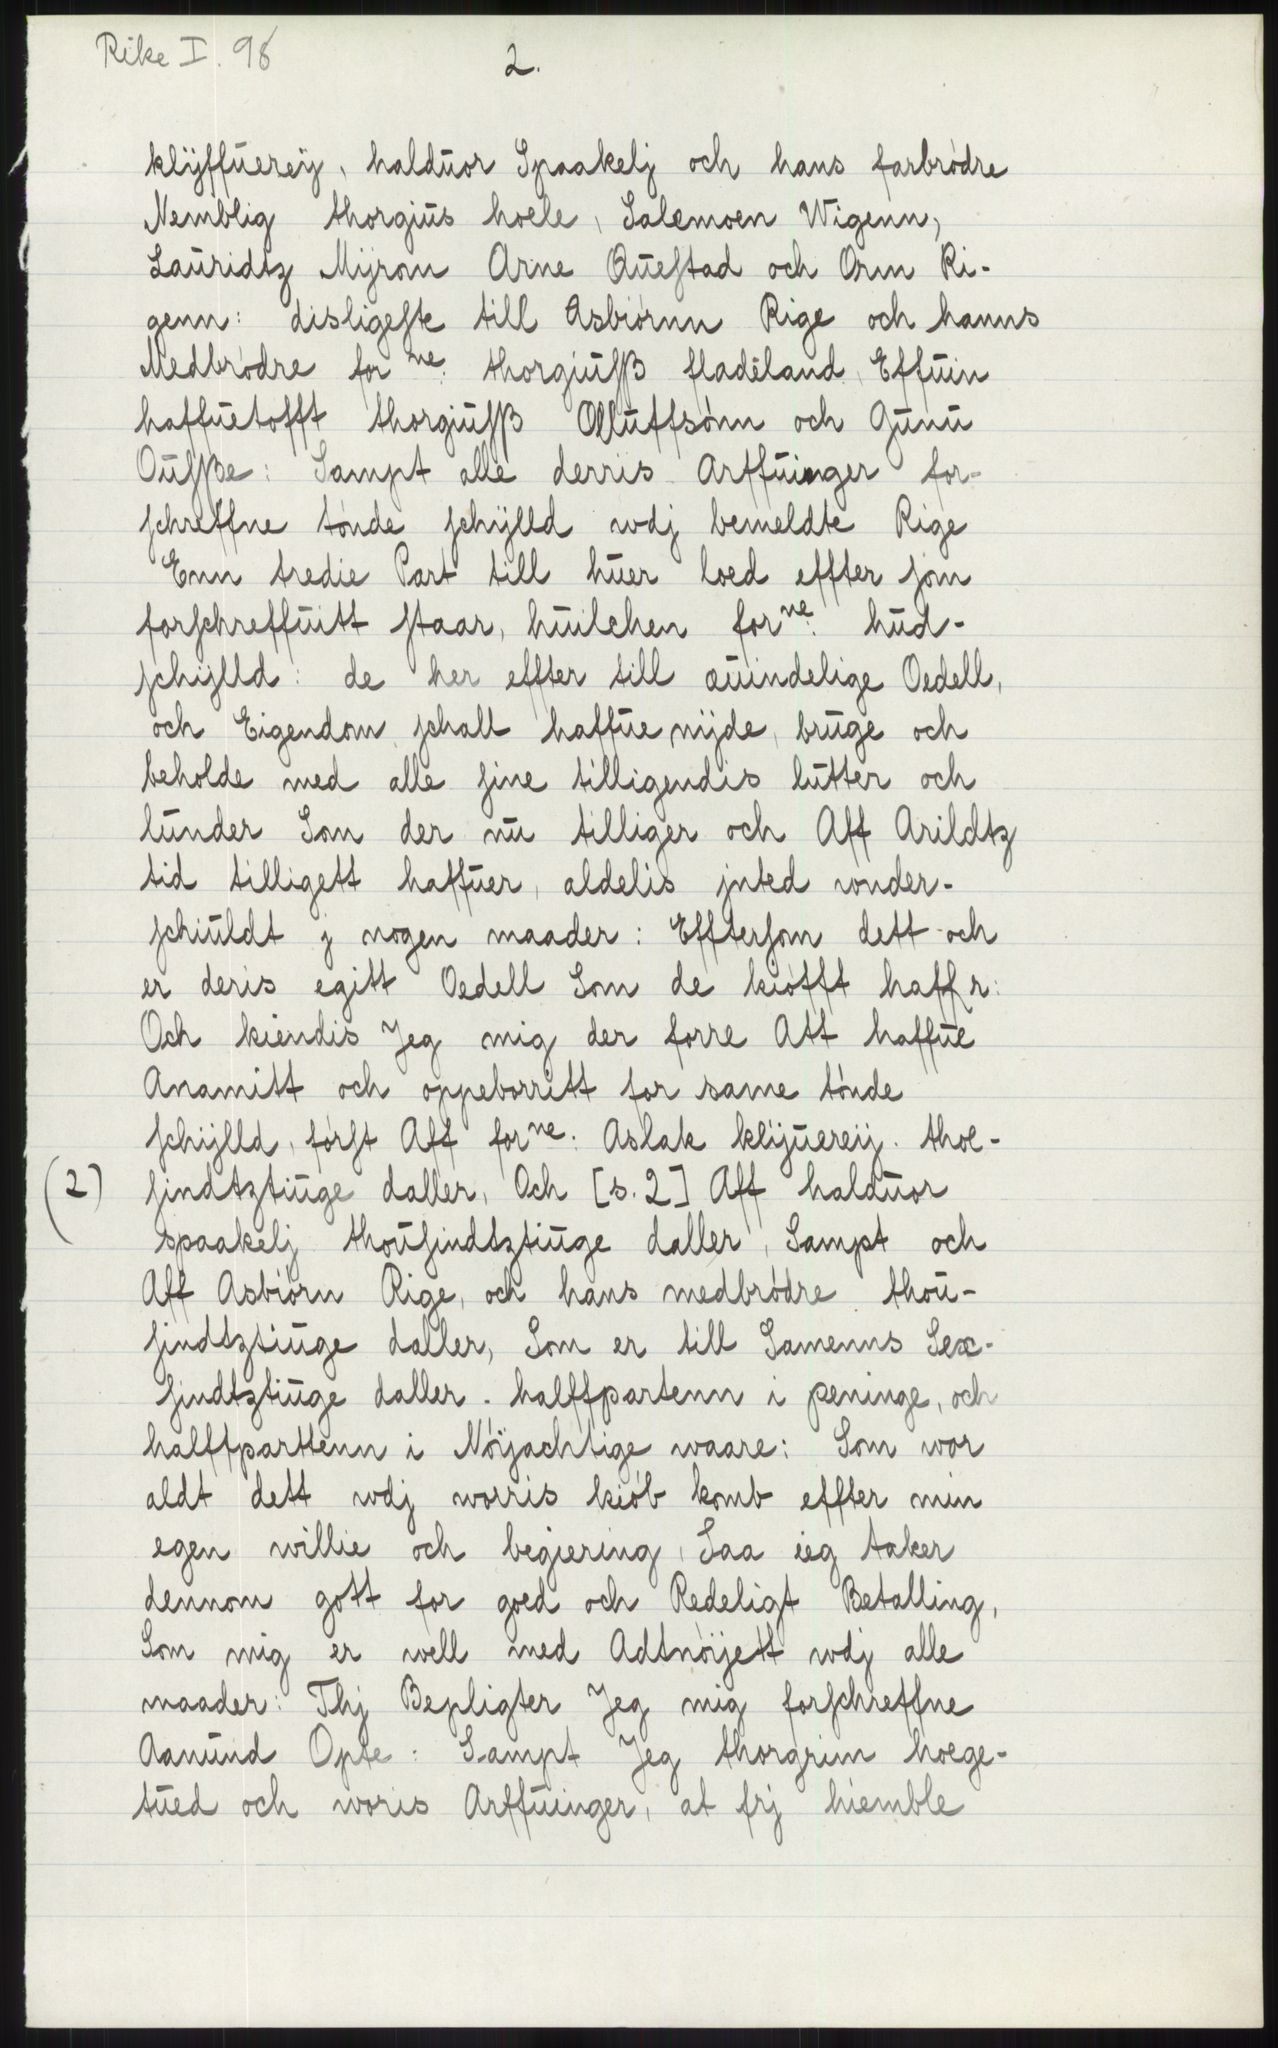 Rike I. 98
2.
klÿffuereÿ, halduor Spaakelj och hans farbrødre
Nemblig thorgius hoele, Salemoen Wigenn,
Lauridtz Mÿron Arne Queſtad och Orm Ri-
genn: disligeſte till Asbiørnn Rige och hanns
Medbrødre for ne: thorgiuſß fladeland, Effuin
haffuetofft thorgiuſß Olluffsønn och Gunu
Ouſße: Sampt alle derris Arffuinger for-
ſchreffne tønde ſchÿlld wdj bemeldte Rige
Enn tredie Part till huer loed effter ſom
forſchreffuitt ſtaar, huilchen forne: hud-
ſchÿlld: de her effter till æuindelige Oedell,
och Eigendom ſchall haffue nÿde, bruge och
beholde med alle ſine tilligendis lutter och
lunder Som der nu tilliger och Aff Arildtz
tid tilligett haffuer, aldelis jnted wonder-
ſchiuldt j nogen maader: Effterſom dett och
er deris egitt Oedell Som de kiøfft haffr:
Och kiendis Jeg mig der forre Att haffue
Anamitt och oppeborritt for same tønde
ſchÿlld, førſt Aff forne: Aslak klÿuereÿ. thoe-
(2) ſindtztiuge daller, Och [s. 2] Aff halduor
spaakelj thouſindtztiuge daller, Sampt och
Aff Asbiørn Rige, och hans medbrødre thou-
ſindtztiuge daller, Som er till Samenns Sex-
ſindtztiuge daller. halffpartenn i peninge, och
halffparttenn i Nøÿachtige waare: Som wor
aldt dett wdj worris kiøb komb effter min
egen willie och begiering, Saa ieg taker
dennom gott for goed och Redeligt Betalling,
Som mig er well med Adtnøÿett wdj alle
maader: Thj Bepligter Jeg mig forſchreffne
Aanund Opte: Sampt Jeg thorgrim hoege-
tued och woris Arffuinger, at frj hiemble